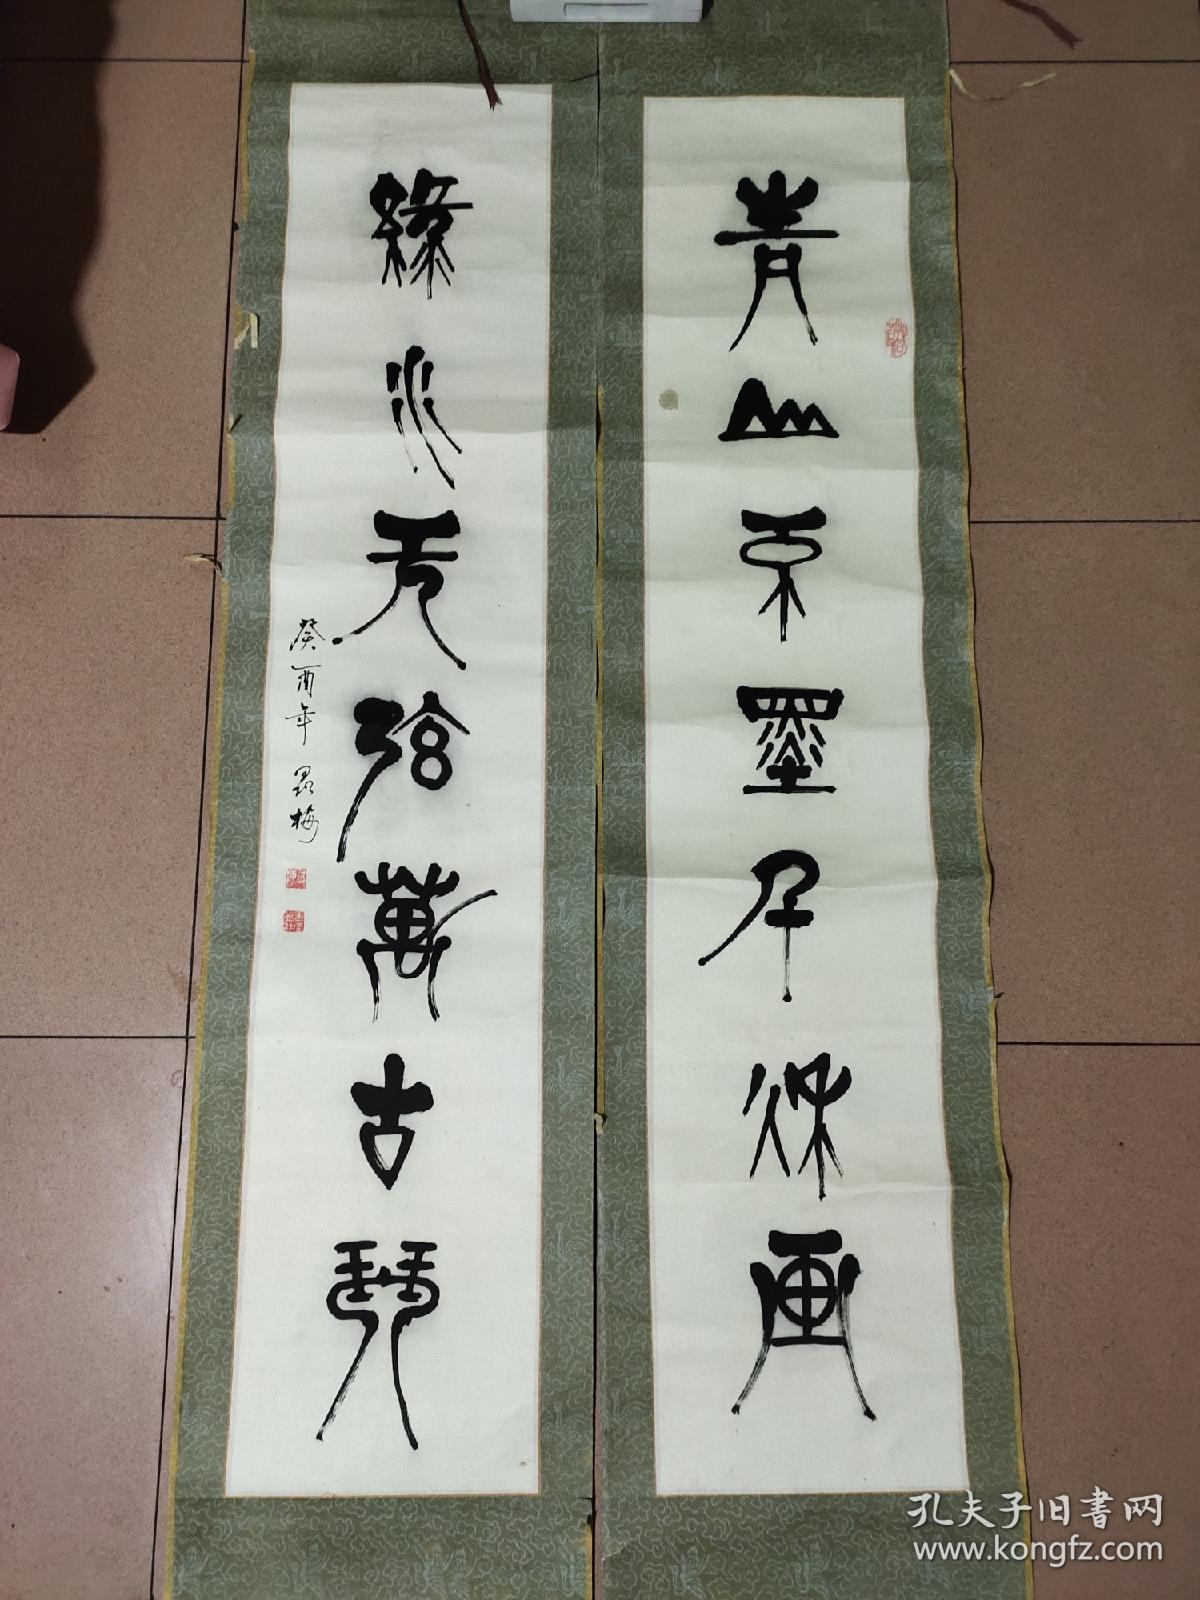 青山不墨千秋画
綠水无弦萬古琴
癸酉年
梅
孔夫子旧书网
www.kongfz.com